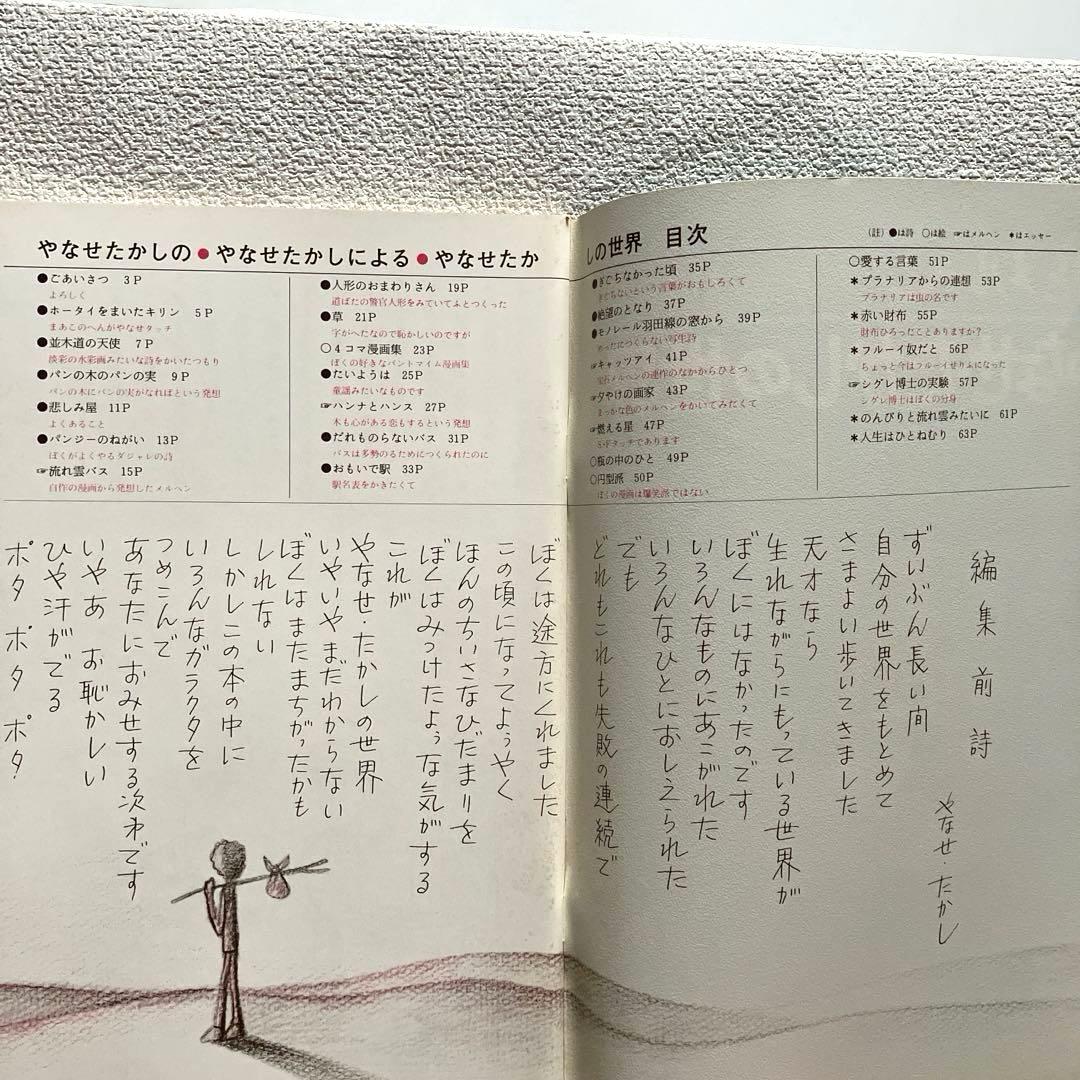 やなせたかしの●やなせたかしによる●やなせたかしの世界 目次
(註)●は詩 ○は絵 ☞はメルヘン *はエッセー
●ごあいさつ 3P
よろしく
●ホータイをまいたキリン 5P
まあこのへんがやなせタッチ
●並木道の天使 7P
淡彩の水彩画みたいな詩をかいたつもり
●パンの木のパンの実 9P
パンの木にパンの実がなればという発想
●悲しみ屋 11P
よくあること
●パンジーのねがい 13P
ぼくがよくやるダジャレの詩
☞流れ雲バス 15P
自作の漫画から発想したメルヘン
●人形のおまわりさん 19P
道ばたの警官人形をみていてふとつくった
●草 21P
字がへたなので恥かしいのですが
○4コマ漫画集 23P
ぼくの好きなパントマイム漫画集
●たいようは 25P
童謡みたいなものです
☞ハンナとハンス 27P
木も心がある恋もするという発想
●だれものらないバス 31P
バスは多勢のためにつくられたのに
●おもいで駅 33P
駅名表をかきたくて
●ぎごちなかった頃 35P
ぎごちないという言葉がおもしろくて
●絶望のとなり 37P
●モノレール羽田線の窓から 39P
めったにつくらない写生詩
☞キャッツアイ 41P
宝石メルヘンの連作のなかからひとつ
☞夕やけの画家 43P
まっかな色のメルヘンをかいてみたくて
☞燃える星 47P
S・Fタッチであります
○瓶の中のひと 49P
○円型派 50P
ぼくの漫画は爆笑派ではない
○愛する言葉 51P
*プラナリアからの連想 53P
プラナリアは虫の名です
*赤い財布 55P
財布ひろったことありますか?
*フルーイ奴だと 56P
ちょっと今はフルーイせりふになった
*シグレ博士の実験 57P
シグレ博士はぼくの分身
*のんびりと流れ雲みたいに 61P
*人生はひとねむり 63P
編集前詩
やなせ・たかし
ずいぶん長い間
自分の世界をもとめて
さまよい歩いてきました
天才なら
生れながらにもっている世界が
ぼくにはなかったのです
いろんなものにあこがれた
いろんなひとにおしえられた
でも
どれもこれも失敗の連続で
ぼくは途方にくれました
この頃になってようやく
ほんのちいさなひだまりを
ぼくはみつけたような気がする
これが
やなせ・たかしの世界
いやいやまだわからない
ぼくはまたまちがったかも
しれない
しかしこの本の中に
いろんなガラクタを
つめこんで
あなたにおみせする次第です
いやあ お恥かしい
ひや汗がでる
ポタ ポタ ポタ